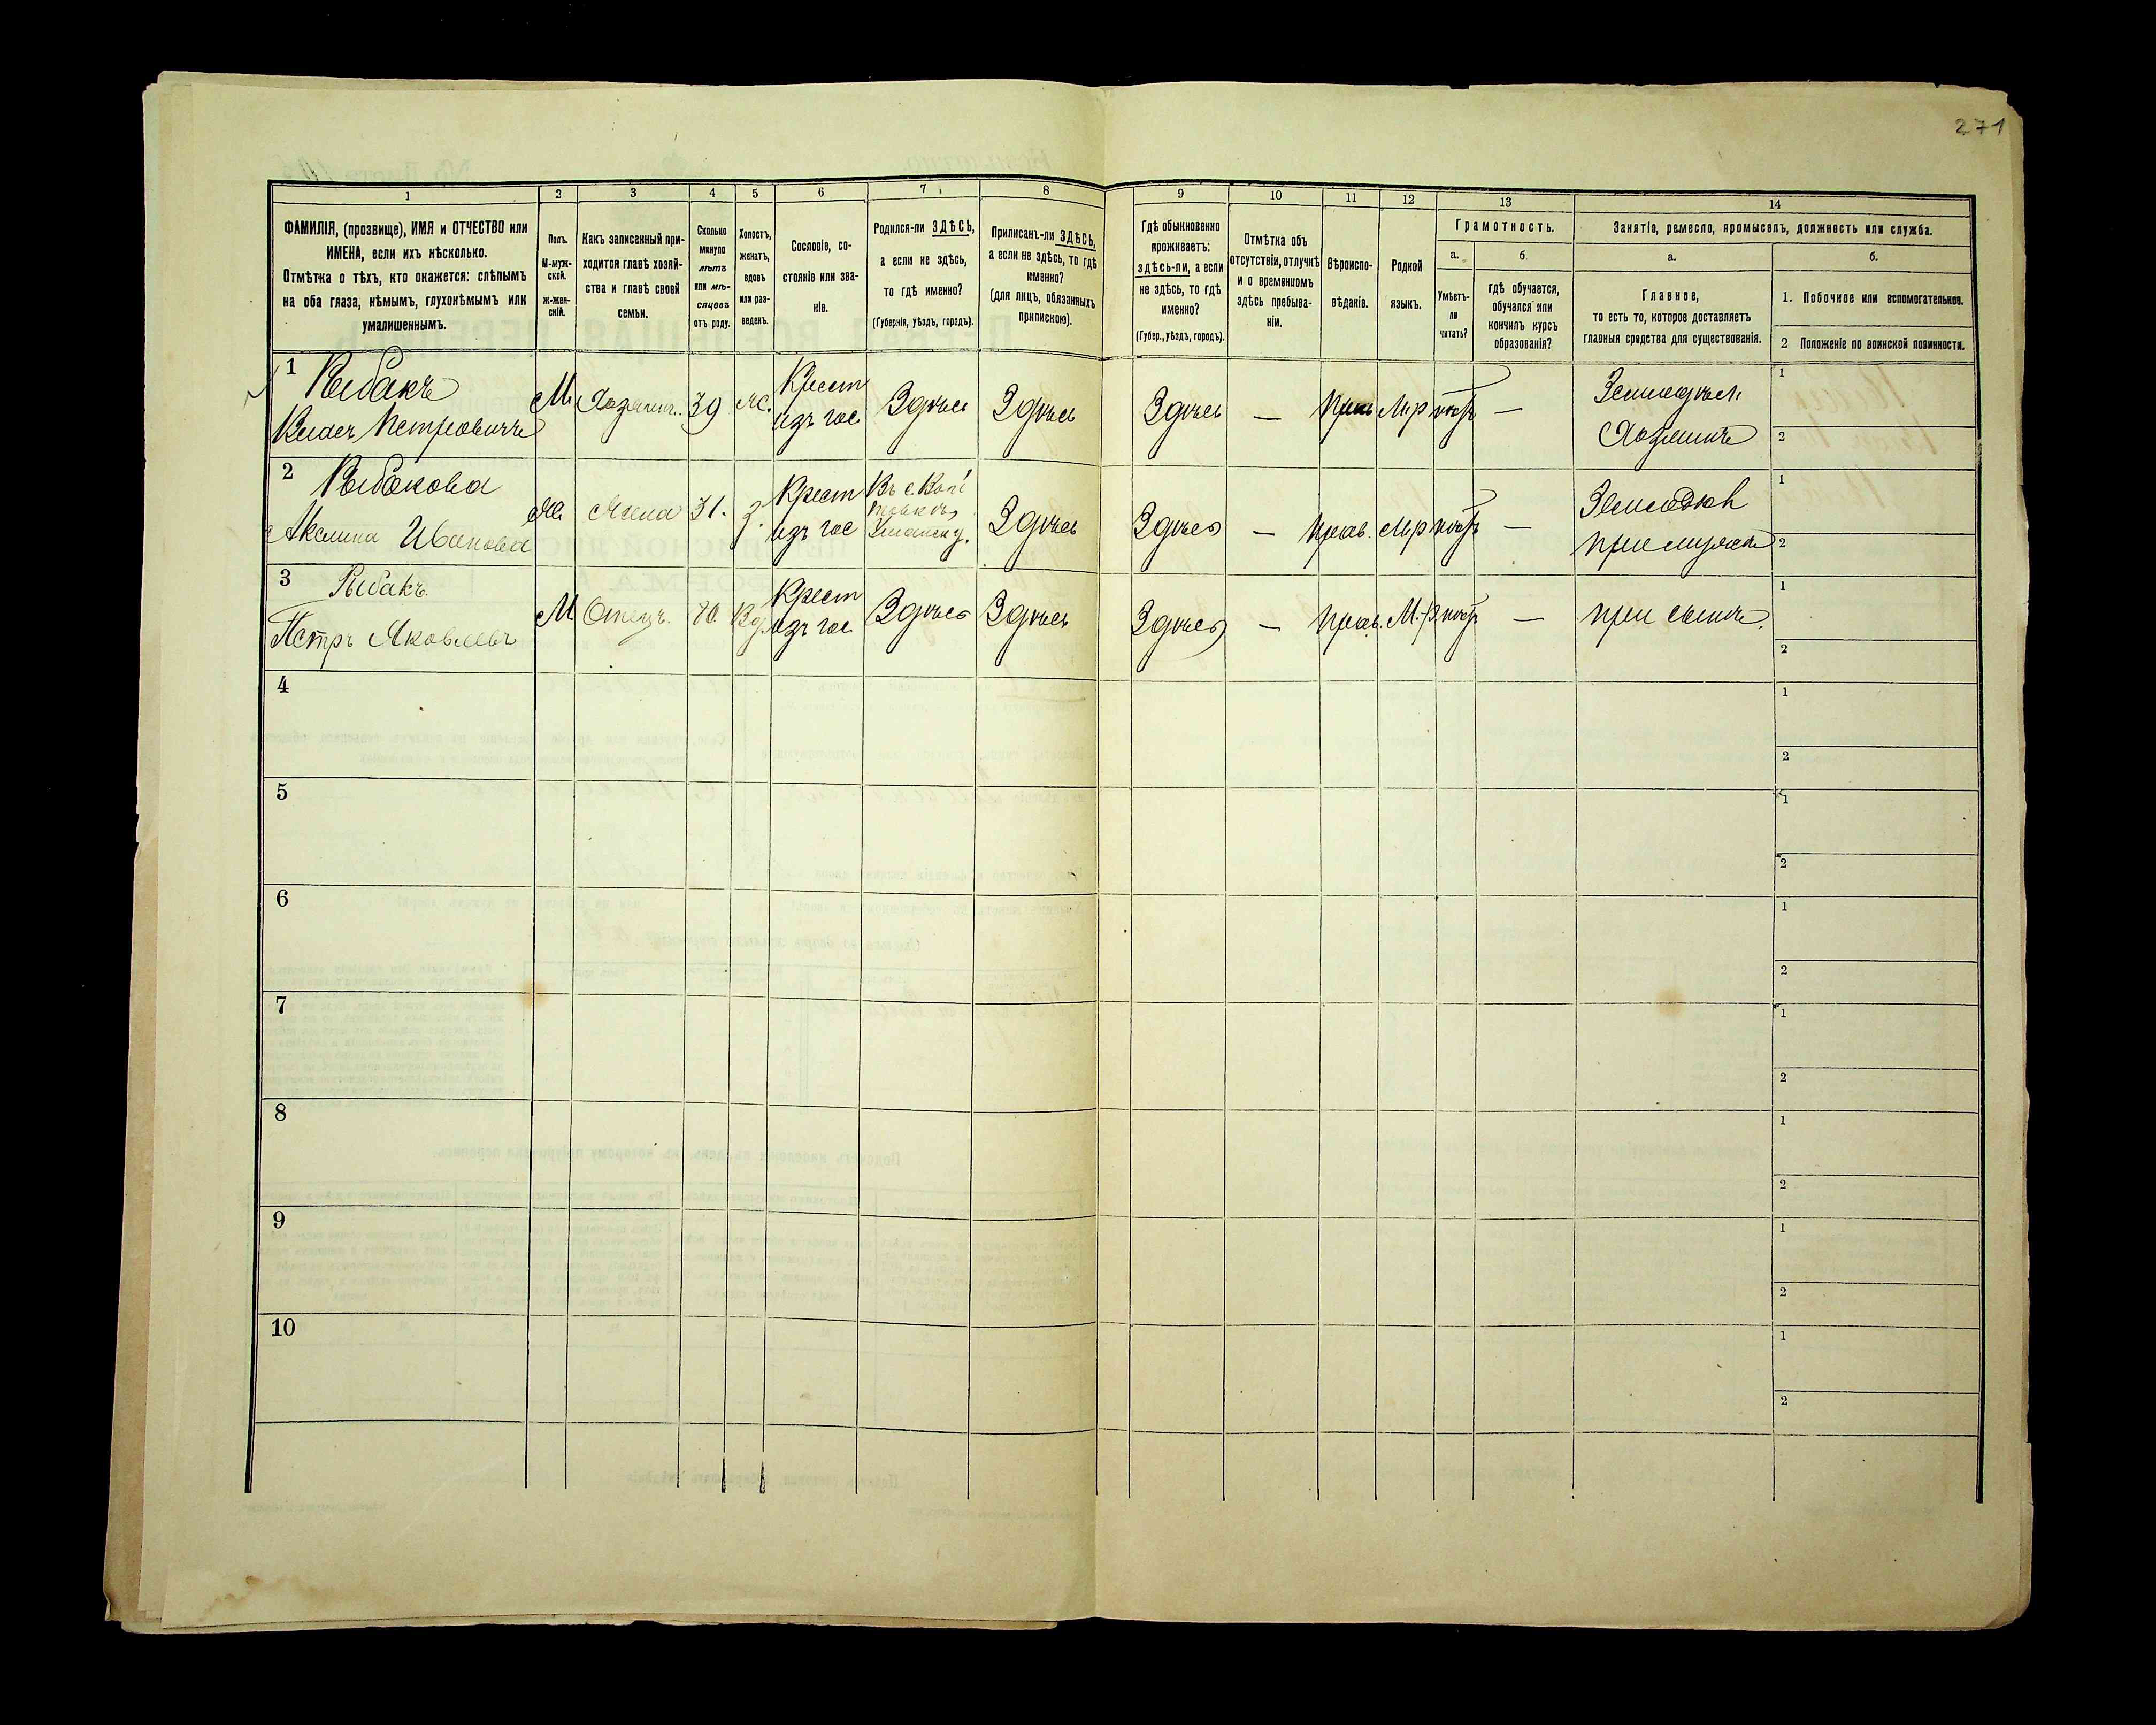 271
1 2 3 4 5 6 7 8 9 10 11 12 13 14
ФАМИЛІЯ, (прозвище), ИМЯ и ОТЧЕСТВО или
ИМЕНА, если ихъ нѣсколько.
Отмѣтка о тѣхъ, кто окажется: слѣпымъ
на оба глаза, нѣмымъ, глухонѣмымъ или
умалишеннымъ.
Полъ.
М-муж-
ской.
ж-жен-
скій.
Какъ записанный при-
ходится главѣ хозяй-
ства и главѣ своей
семьи.
Сколько
минуло
лѣтъ
или мѣ-
сяцевъ
отъ роду.
Холостъ,
женатъ,
вдовъ
или раз-
веденъ.
Сословіе, со-
стояніе или зва-
ніе.
Родился-ли ЗДѢСЬ,
а если не здѣсь,
то гдѣ именно?
(Губернія, уѣздъ, городъ).
Приписанъ-ли ЗДѢСЬ,
а если не здѣсь, то гдѣ
именно?
(для лицъ, обязанныхъ
припискою).
Гдѣ обыкновенно
проживаетъ:
здѣсь-ли, а если
не здѣсь, то гдѣ
именно?
(Губер., уѣздъ, городъ).
Отмѣтка объ
отсутствіи, отлучкѣ
и о временномъ
здѣсь пребыва-
ніи.
Вѣроиспо-
вѣданіе.
Родной
языкъ.
Грамотность.
а.
Умѣетъ-
ли
читать?
б.
гдѣ обучается,
обучался или
кончилъ курсъ
образованія?
Занятіе, ремесло, промыселъ, должность или служба.
а.
Главное,
то есть то, которое доставляетъ
главныя средства для существованія.
б.
1. Побочное или вспомогательное.
2 Положеніе по воинской повинности.
1 Рыбакъ
Петровичъ
М. Хозяинъ. 39 ж. Крест
изъ гос Здѣсь Здѣсь Здѣсь — Прав М.р — Земледѣл.
Хозяинъ
1
2
2 Рыбакова
Акилина Иванова
Ж. Жена 31. З. Крест
изъ гос Здѣсь Здѣсь — Прав. М.р —
при мужѣ
1
2
3 Рыбакъ.
Петръ Яковлевъ
М Отецъ. 80. Вд. Крест
изъ гос Здѣсь Здѣсь Здѣсь — Прав. М.-р. — при сынѣ.
1
2
4
1
2
5
1
2
6
1
2
7
1
2
8
1
2
9
1
2
10
1
2